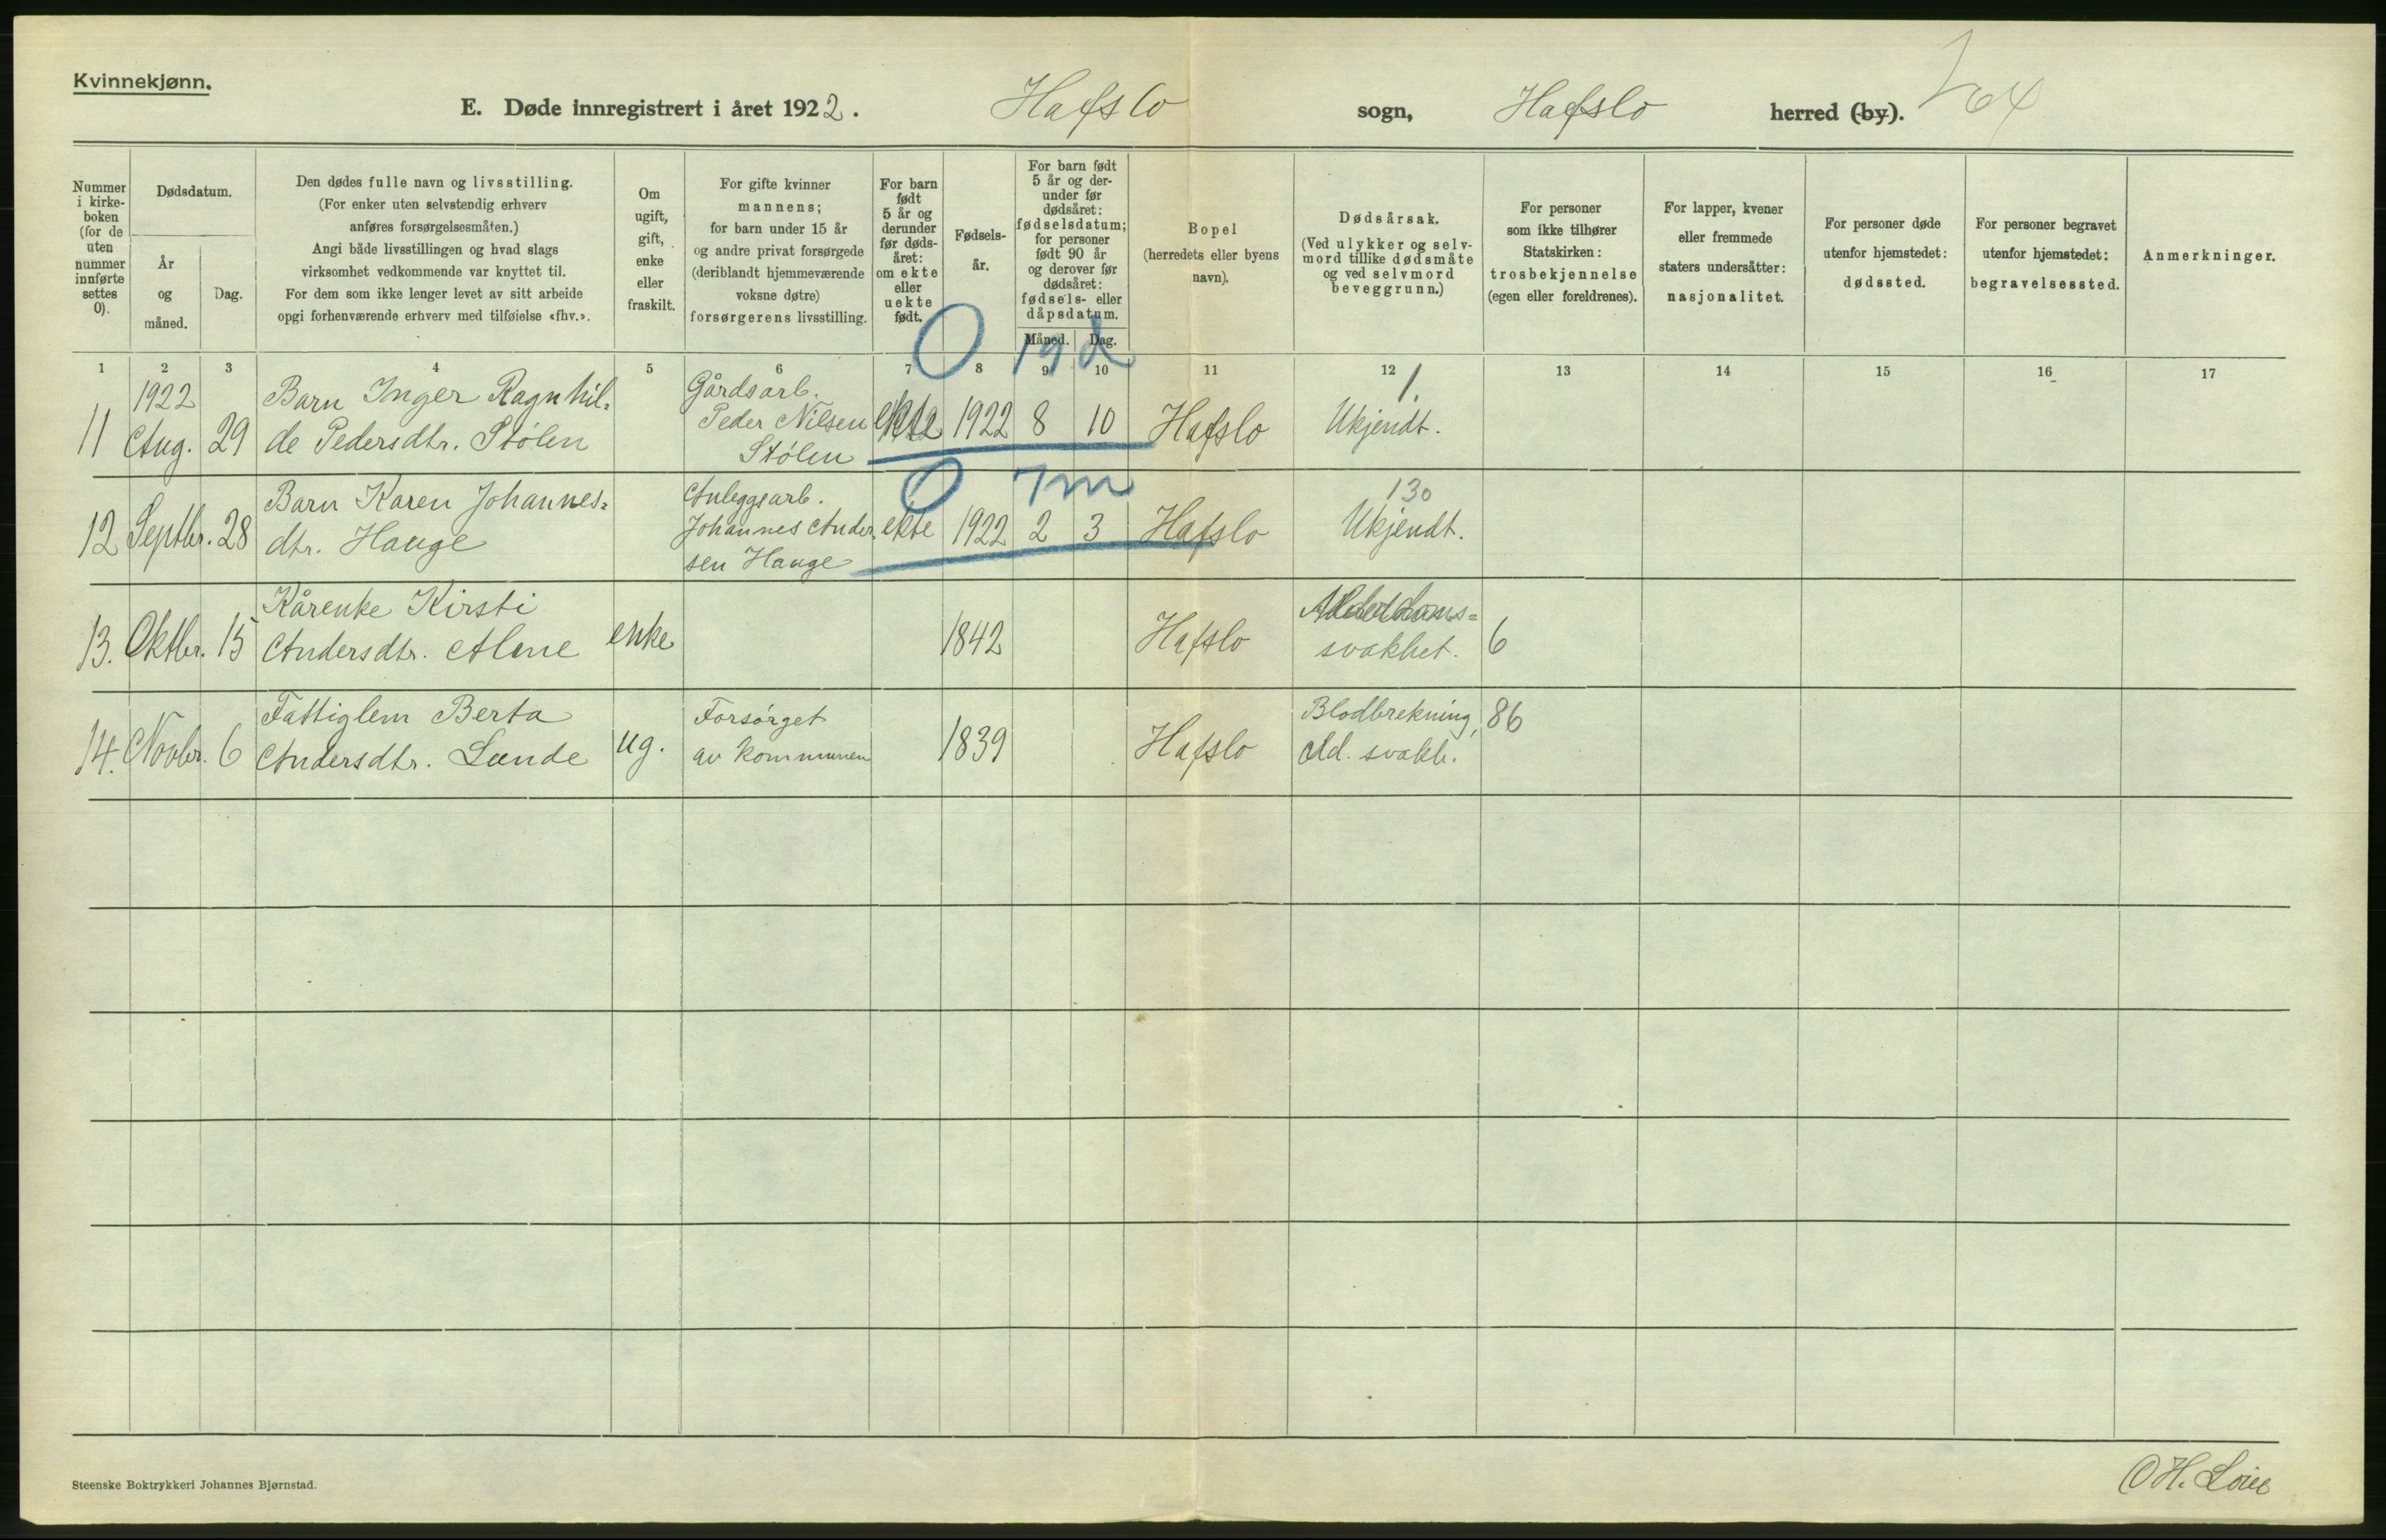 Kvinnekjønn.
E. Døde innregistrert i året 1922. Hafslo sogn, Hafslo herred (by). 64
Nummer i kirkeboken (for de uten nummer innførte settes 0).
Dødsdatum.
År og måned.
Dag.
Den dødes fulle navn og livsstilling.
(For enker uten selvstendig erhverv
anføres forsørgelsesmåten.)
Angi både livsstillingen og hvad slags
virksomhet vedkommende var knyttet til.
For dem som ikke lenger levet av sitt arbeide
opgi forhenværende erhverv med tilføielse «fhv.».
Om ugift, gift, enke eller fraskilt.
For gifte kvinner
mannens;
for barn under 15 år
og andre privat forsørgede
(deriblandt hjemmeværende
voksne døtre)
forsørgerens livsstilling.
For barn født 5 år og derunder før dødsåret: om ekte eller uekte født.
Fødselsår.
For barn født 5 år og derunder før dødsåret: fødselsdatum; for personer født 90 år og derover før dødsåret: fødsels- eller dåpsdatum.
Måned. Dag.
Bopel
(herredets eller byens
navn).
Dødsårsak.
(Ved ulykker og selvmord tillike dødsmåte og ved selvmord beveggrunn.)
For personer
som ikke tilhører
Statskirken:
trosbekjennelse
(egen eller foreldrenes).
For lapper, kvener
eller fremmede
staters undersåtter:
nasjonalitet.
For personer døde
utenfor hjemstedet:
dødssted.
For personer begravet
utenfor hjemstedet:
begravelsessted.
Anmerkninger.
1 2 3 4 5 6 7 8 9 10 11 12 13 14 15 16 17
0 19 d
1922 Barn Inger Ragnhil= Gårdsarb. 1.
11 Aug. 29 de Pedersdtr. Stølen Peder Nilsen ekte 1922 8 10 Hafslo Ukjendt.
Stølen
0 7m
Barn Karen Johannes= Anleggsarb. 130
12 Septbr. 28 dtr. Hauge Johannes Ander= ekte 1922 2 3 Hafslo Ukjendt.
sen Hauge
Kårenke Kirsti Alderdoms=
13. Oktbr. 15 Andersdtr. Alme enke 1842 Hafslo svakhet. 6
Fattiglem Berta Forsørget Blodbrekning, 86
14. Novbr. 6 Andersdtr. Lunde ug. av kommunen 1839 Hafslo Ald. svakh.
Steenske Boktrykkeri Johannes Bjørnstad.